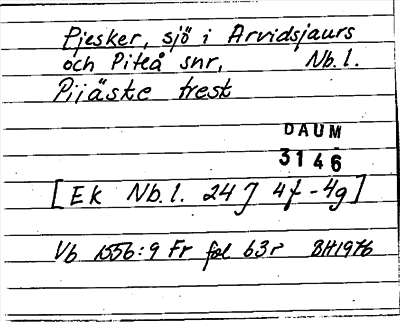 Pjesker, sjö i Arvidsjaurs
och Piteå snr, Nb.l.
Pijäste trest
DAUM
3146
[Ek Nb.l. 24J 4f-4g]
Vb 1556:9 Fr fol 63r BH1976